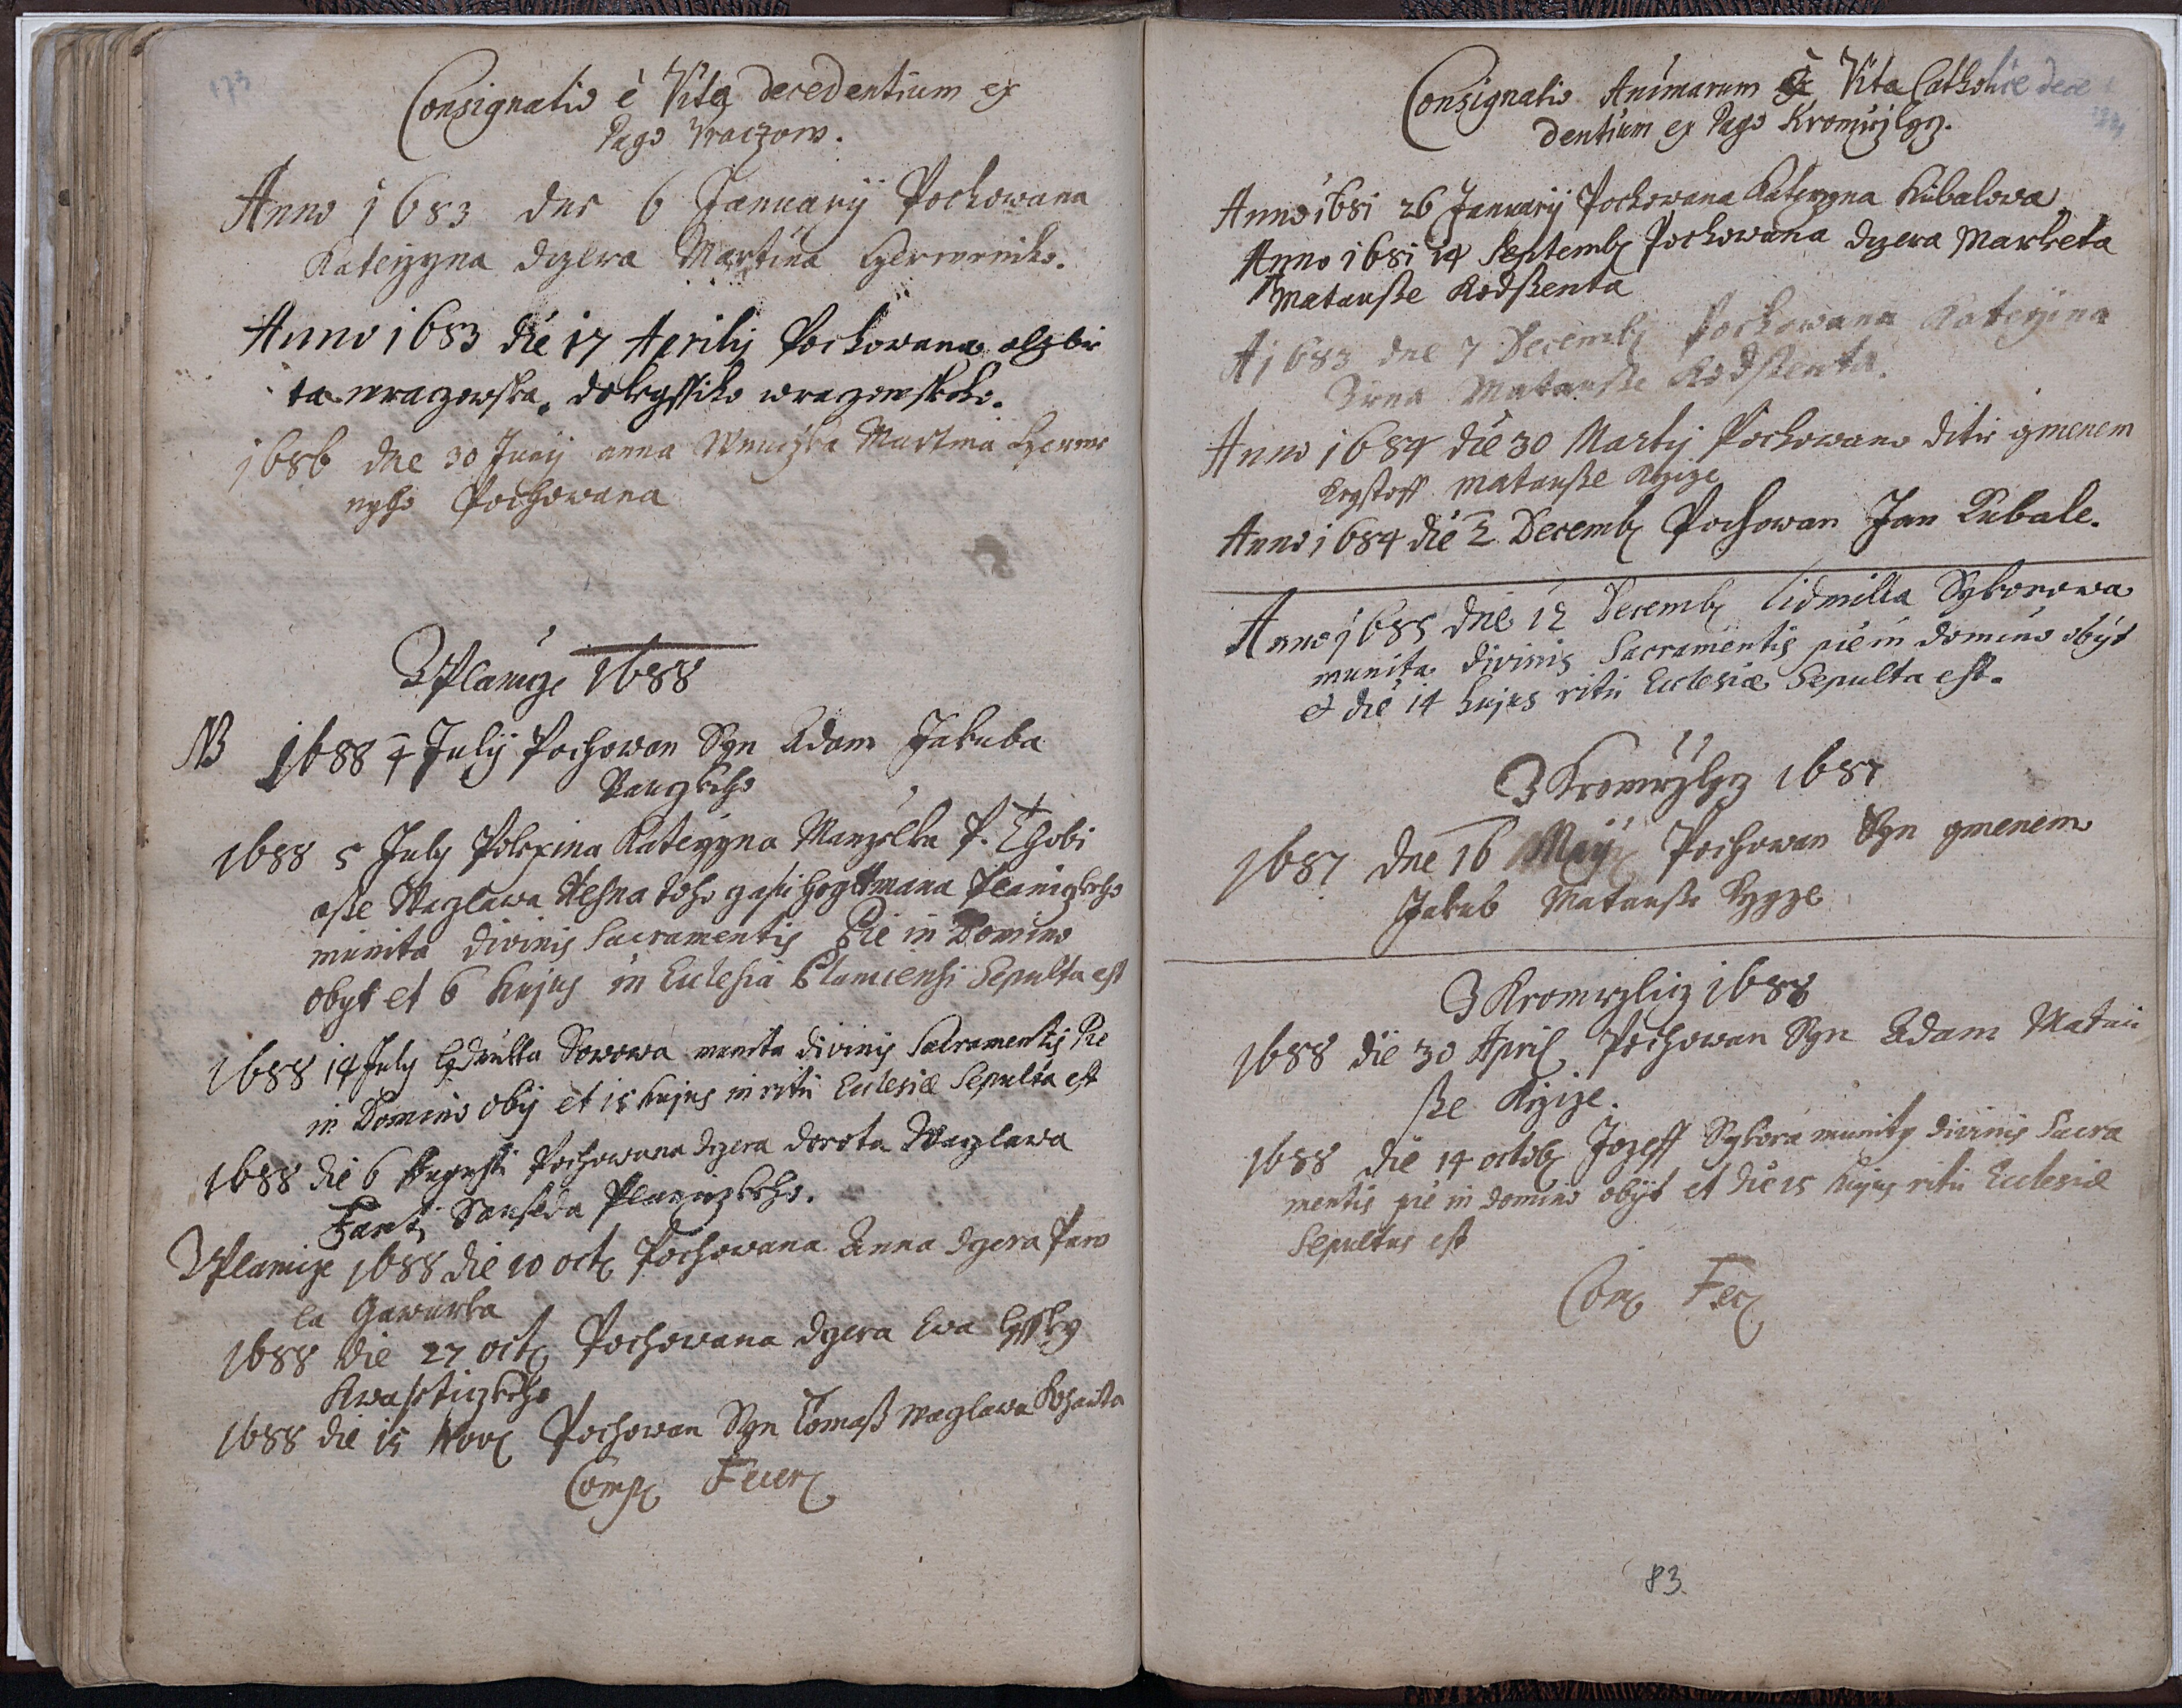 173
Consignatio è Vita decedentium ex
Pago Vraczow.
Anno 1683 dne 6 January Pochowana
Katerzyna dczera Martina
Anno 1683 die 17 Aprilis Pochowana alzbie
ta wraczowska, wraczowskeho.
1686 dne 30 Juny anna Wnuczka Martina
nyho Pochowana
Z Planicze 1688
NB 1688 4 July Pochowan Syn Adam Jakuba
1688 5 July Polexina Kateryna Manzelka P. Thobi
asse Waczlawa toho czasu hegttmana Planiczkeho
munita divinis Sacramentis Pie in Domino
obyt et 6 hujus in Ecclesia Planicensi Sepulta est
1688 14 July Sowowa munita divinis Sacramentis Pie
in Domino obij et 15 hujus in ritu Ecclesiæ Sepulta est
1688 die 6 Augusti Pochowana dczera dorota Waczlawa
Planiczkeho.
Z Planicze 1688 die 10 oct Pochowana Anna dczera Paw
la Gawurka
1688 die 27 oct Pochowana dczera Ewa
Kwassticzkeho
1688 die 15 Nov Pochowan Syn Tomaß Waczlawa
Comp Fecer
Consignatio Animarum è Vita Catholice dece
dentium ex Pago
Anno 1681 26 January Pochowana Katerzyna Kubalowa
Anno 1681 14 Septemb Pochowana dczera Marketa
Matauße Kodßenta
A 1683 dne 7 Decemb Pochowana Kateržina
Žena Matauße Kodßenta.
Anno 1684 die 30 Martij Pochowano ditie gmenem
Krystoff matauße
Anno 1684 die 2 Decemb Pochowan Jan Kubale.
Anno 1685 dne 12 Decemb Lidmilla Sykorowa
munita divinis Sacramentis pie in domino obijt
et die 14 hujus ritu Ecclesiæ Sepulta est.
Z 1687
1687 dne 16 Maij Pochowan Syn gmenem
Jakub Matauße
Z Kromrzlicz 1688
1688 die 30 April Pochowan Syn Adam Matau
ße
1688 die 14 octob Jozeff Sykora munity divinis Sacra
mentis pie in domino obijt et die 15 hujus ritu Ecclesiæ
Sepultus est
Com Fec
83.